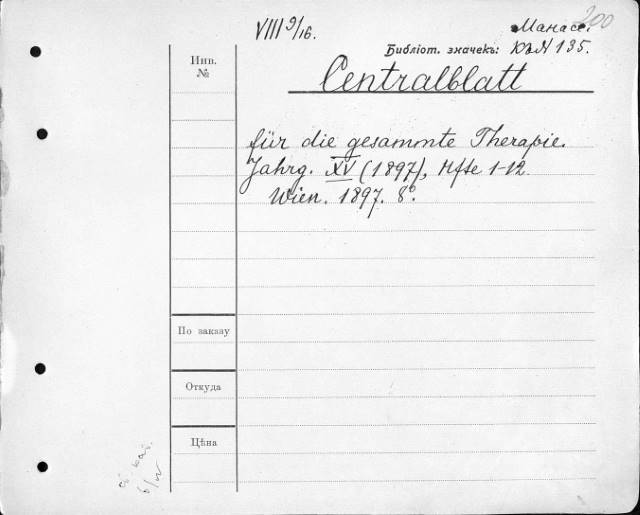 VIII 9/16.
Манасс.
200
Библіот. значекъ: КъN 135.
Инв.
№
Centralblatt
für die gesammte Therapie.
Jahrg. XV (1897), Hfte 1-12.
Wien. 1897. 8°.
По заказу
Откуда
Цѣна